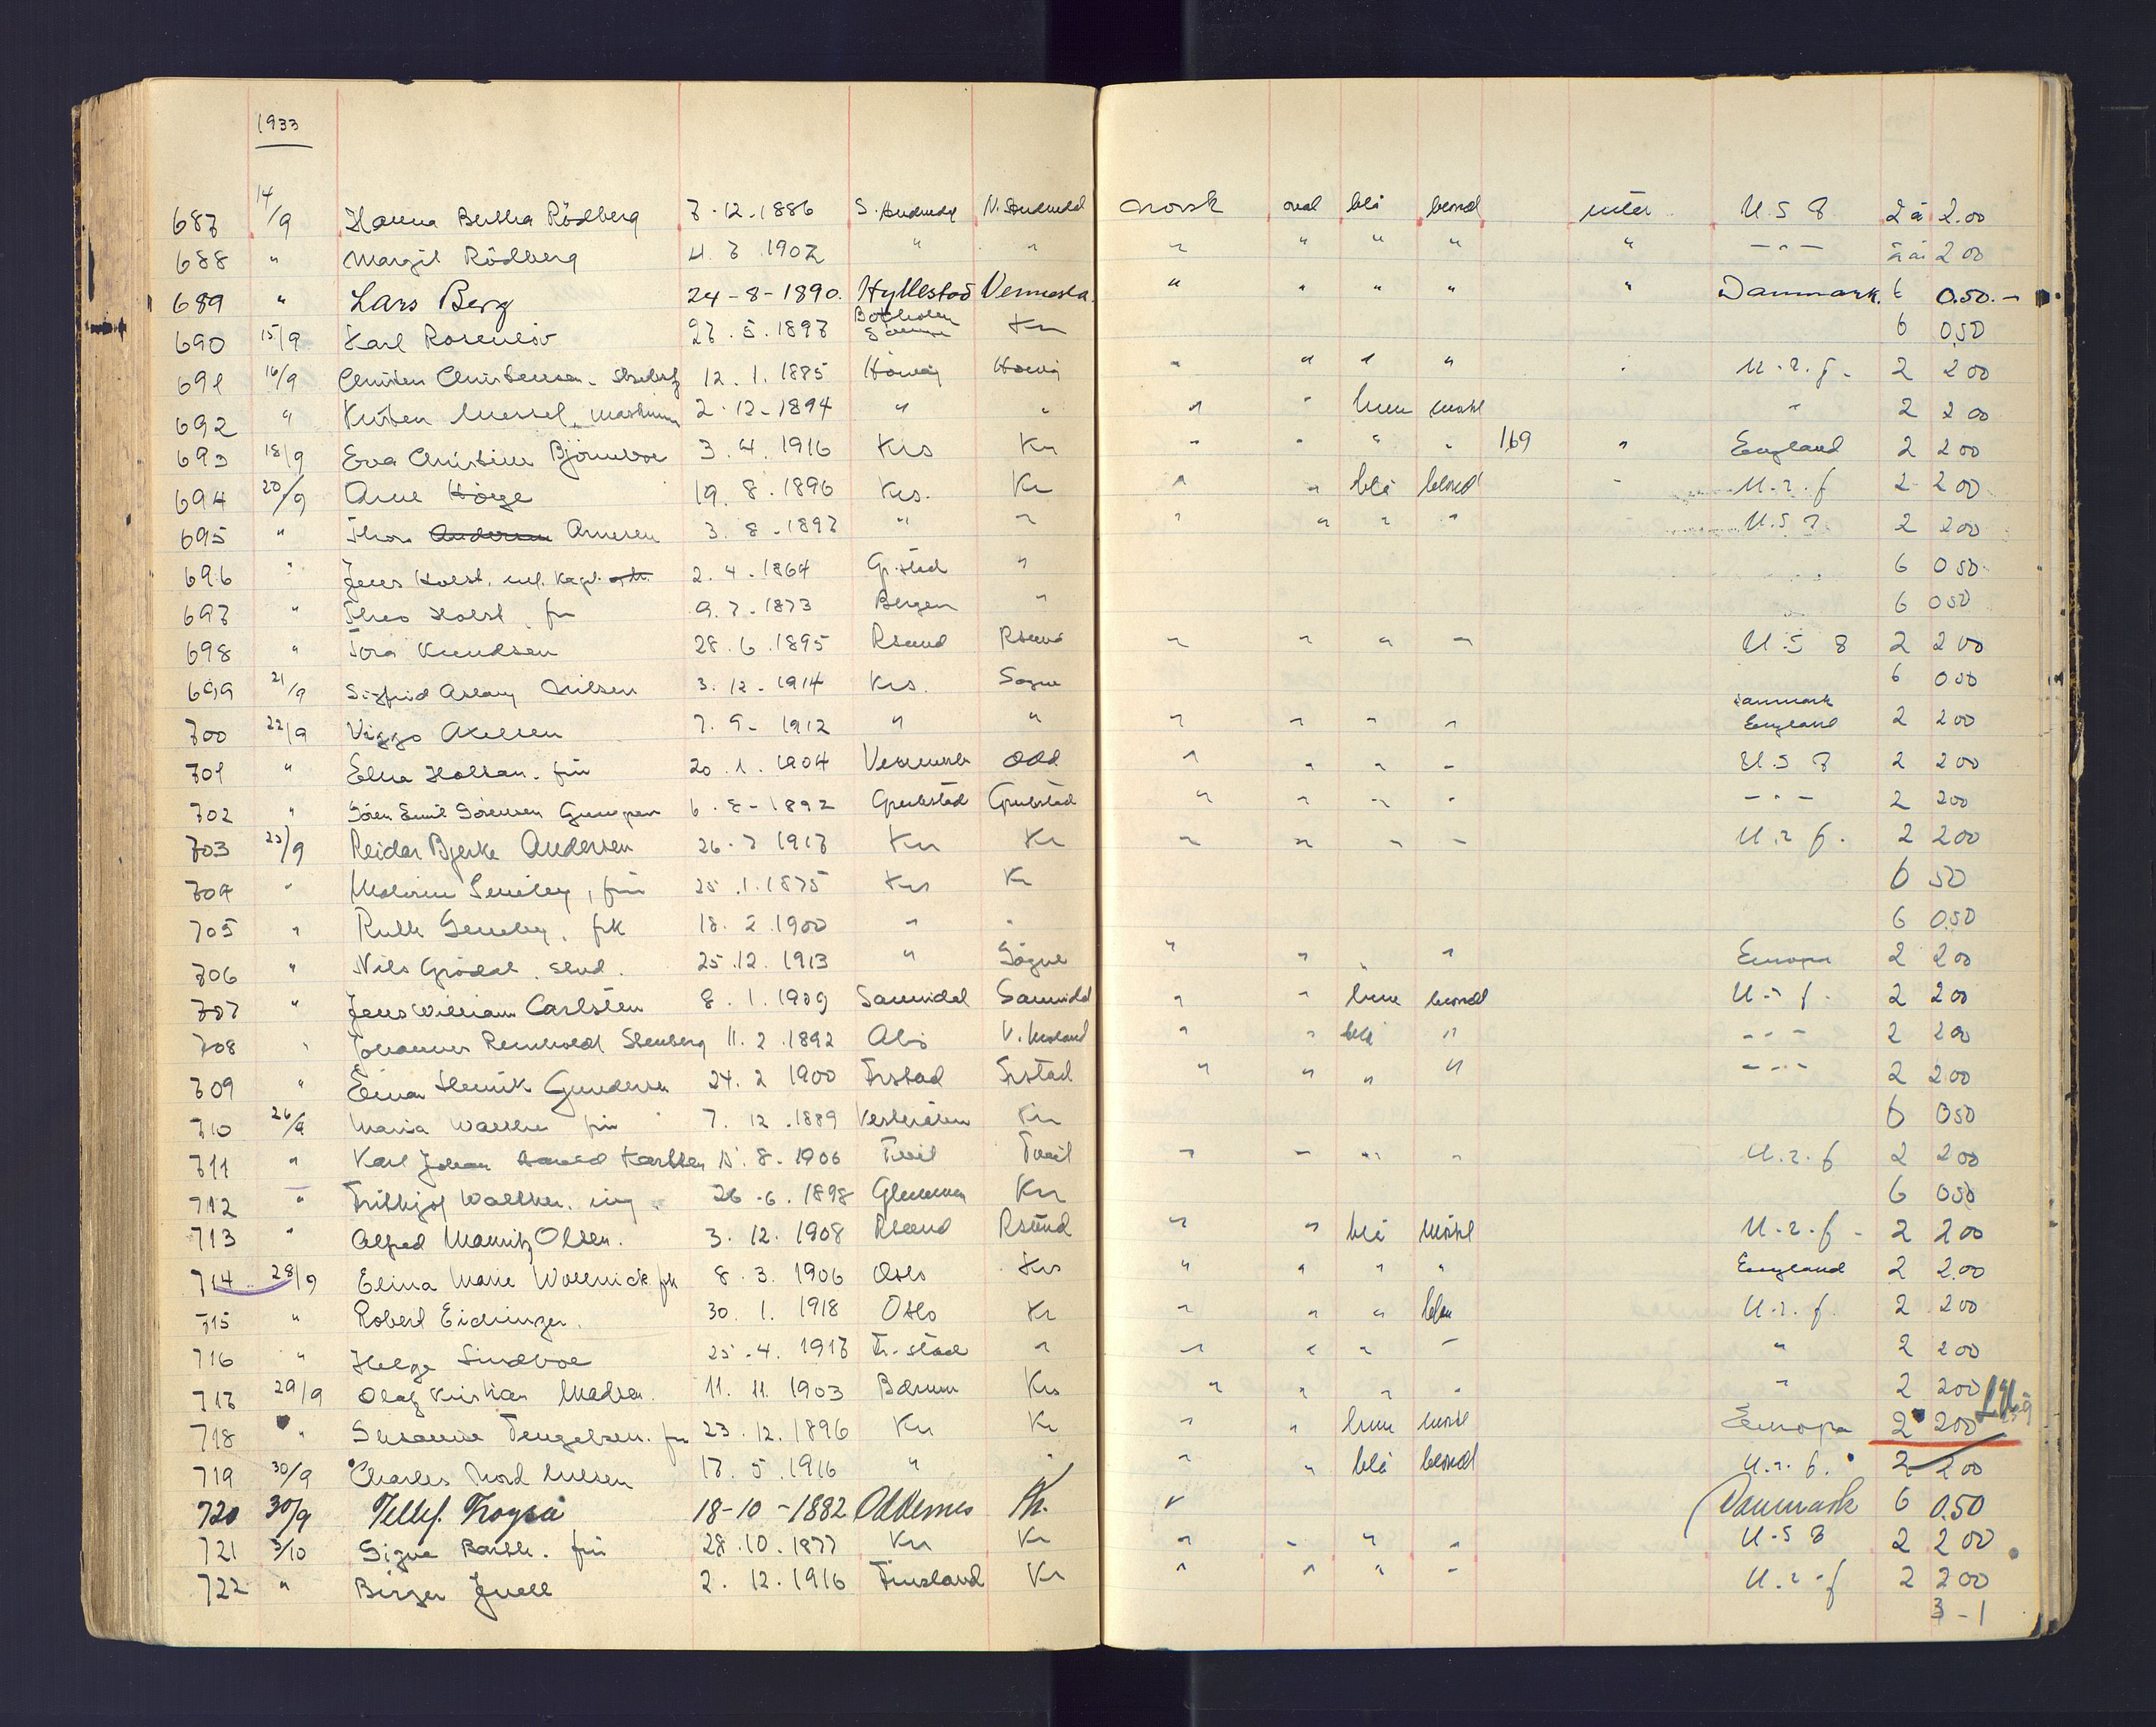 1933
687 14/9 Hanna Bertha Rödberg 7.12.1886 S. Audnedal N. Audnedal norsk oval blå blond intet U.S.A. 2 à 2.00
688 " Margit Rödberg 4.7.1907 " " " " " " " -"- 2 à 2 00
689 " Lars Berg 24-8-1890. Hyllestad Vennesla. " " " " " Danmark. 6 0.50.-
690 15/9 Karl Rosenlöv 27.5.1897 Kr 6 0,50
691 16/9 Christen Christensen. 12.1.1885 Hövåg Hövåg " " " " " U.r.f. 2 2 00
692 " Kirsten 2.12-1894 " " " " brun mörk " 2 2 00
693 18/9 Eva Christine Björneboe 3.4.1916 Krs Kr " " " " 169 " England 2 2 00
694 20/9 Arne Höige 19.8.1896 Krs. Kr " " blå blond " U.r.f 2 2 00
695 " Thora Andersen Arnesen 3.8.1897 " " " " " " U.S.A. 2 2 00
696 " Jens Holst, 2.4.1864 Gr.stad " 6 0 50
697 " Thea Holst fru 9.7.1873 Bergen " 6 0 50
698 " Tora Knudsen 28.6.1895 Rsund Rsund " " " " U.S A 2 2 00
699 21/9 Sigfrid Aslaug Nilsen 3.12.1914 Krs. Sogne 6 0 50
700 22/9 Viggo Axelsen 7.9-1912 " " " " " " Danmark England 2 2 00
701 " Elna Holtan. fru 20.1.1904 Vennesla Odd " " " " U.S A 2 2 00
702 " Sören Emil Sörensen 6.8-1892 Grubstad Grubstad " " " " -"- 2 2 00
703 23/9 Reidar Bjerke Andersen 26.7 1917 Kr Kr " " " " U.r f. 2 2 00
704 " fru 25.1.1875 Krs Kr 6 50
705 " Ruth frk 18.2.1900 " " 6 0.50
706 " Nils Grödal. stud. 25.12.1913 " Sögne " " " " Europa 2 2 00
707 " Jens William Carlsten 8.1.1909 Sannidal Sannidal " " brun blond U.r f. 2 2 00
708 " Johannes Reinhold Stenberg 11.2.1892 Åbo " " blå " -"- 2 2 00
709 " Einar Henrik Gundersen 24.2 1900 Frstad Frstad " " " " -"- 2 2 00
710 26/9 Maria Walther fru 7.12.1889 Kr 6 0 50
711 " Karl Johan Karlsen 15.8.1906 Tveit Tveit " " " " U.r.f 2 2 00
712 " Fritthjof Walther. ing. 26.6.1898 Glemmen Kr 6 0 50
713 " Alfred Mauritz Olsen. 3.12.1908 Rsund Rsund " " blå mörk U.r.f- 2 2 00
714 28/9 Elina Marie Wollnick. frk 8.3.1906 Oslo Krs " " " " England 2 2.00
715 " Robert Eidringer. 30.1.1918 Oslo Kr " " " U.r.f. 2 2 00
716 " Helge Sindboe 25.4.1917 Fr.stad " " " " " " 2 2 00
717 29/9 Olaf Kristian Madsen. 11.11.1903 Bærum Krs " " " " " 2 2 00
718 " Susanne Tengelsen. fru 23.12.1896 Kr Kr " " brun mörk Europa 2 2 00
719 30/9 Charles Nord Nilsen 17.5.1916 " " " " blå blond U.r.f. 2 2 00
720 30/9 Tellef. Trogsa 18-10-1882 Oddernes Kr. " Danmark 6 0.50
721 3/10 Signe Barth. fru 28.10.1877 Kr Kr " " " " U.S A 2 2 00
722 " Birger Juell 2.12.1916 Finsland Kr " " " " U.r.f 2 2 00
3-1